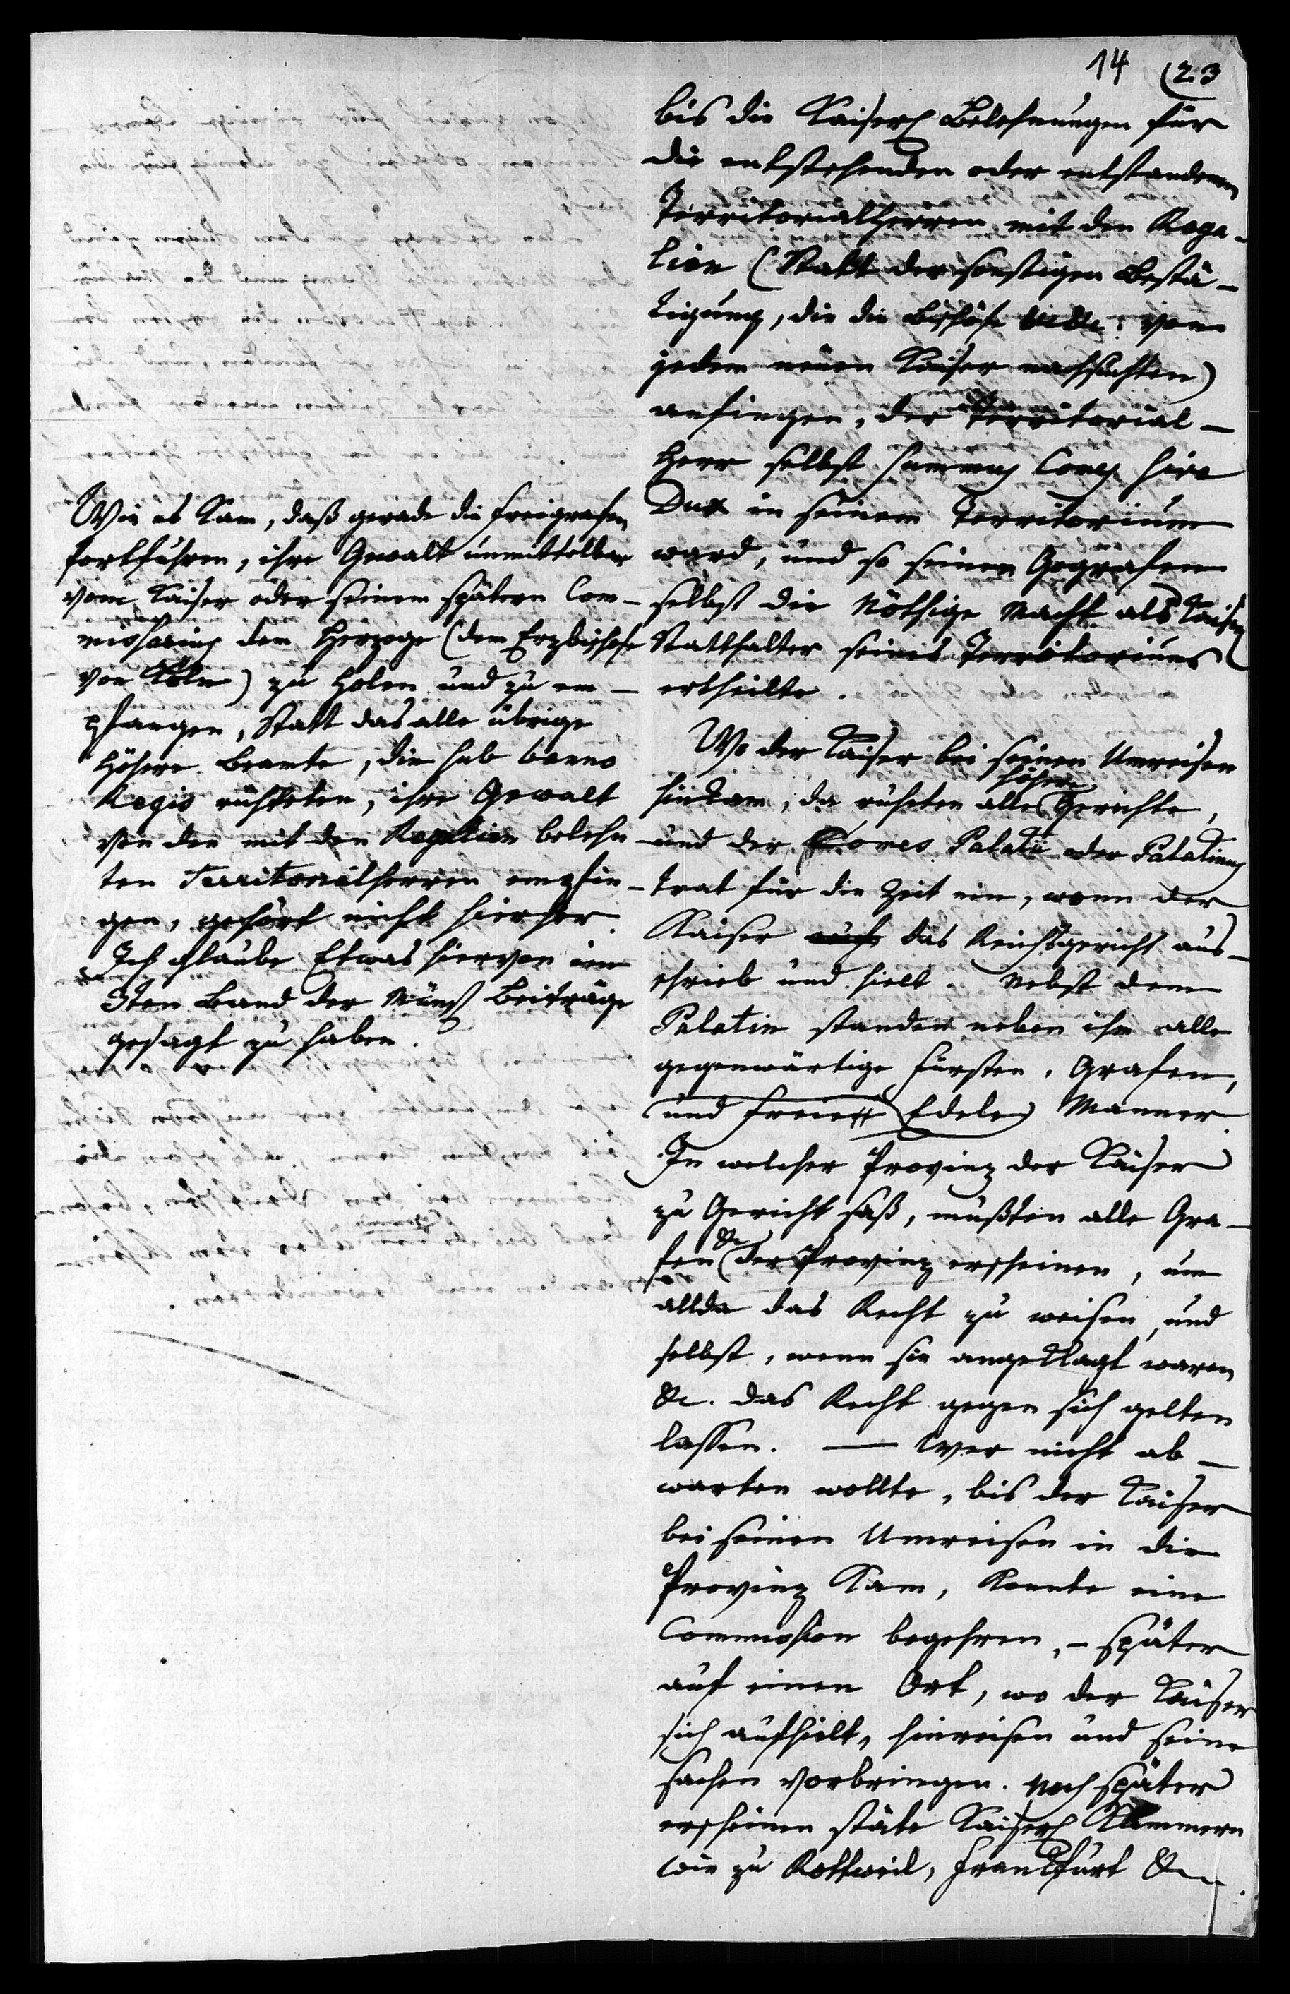 14 (23
bis die Kaiserl Belehnungen für
die entstehenden oder entstandenen
Territorialherren mit den Rega-
lien (Statt der sonstigen Bestä-
tigung, die die Bischöfe von
jedem neuen Kaiser nachsuchten)
anfingen, der Territorial-
Herr selbst Comes sive
Dux in seinem Territorium
ward, und so seinen Gografen
selbst die nöthige Macht als Kaiserl
Statthalter seines Territoriums
ertheilte.
Wo der Kaiser bei seinen Umreisen
höhere
hinkam, da ruheten alle Gerichte,
und der Comes Palatii oder Palatinus
trat für die Zeit ein, wenn der
Kaiser auch das Reichsgericht aus-
schrieb und hielt. Nebst dem
Palatin standen neben ihm alle
gegenwärtige Fürsten, Grafen,
und freie Edele Männer.
In welcher Provinz der Kaiser
zu Gericht saß, mußten alle Gra-
&c
fen der Provinz erscheinen, um
allda das Recht zu weisen, und
selbst, wenn sie angeklagt waren
&c. das Recht gegen sich gelten
lassen. — Wer nicht ab-
warten wollte, bis der Kaiser
bei seinen Umreisen in die
Provinz kam, konnte eine
Commission begehren, – später
auf einen Ort, wo der Kaiser
sich aufhielt, hinreisen und seine
Sachen vorbringen. Noch später
erscheinen stäte Kaiserl Kammern
wie zu Rottweil, Frankfurt &c.
Wie es kam, daß gerade die Freigrafen
fortfuhren, ihre Gewalt unmittelbar
vom Kaiser oder seinem spätern Com-
missarius dem Herzoge (dem Erzbischofe
von Köln) zu holen und zu em-
pfangen, Statt das alle übrige
höhere Beamte, die sub banno
Regis richteten, ihre Gewalt
von den mit den Regalien belehn-
ten Territorialherren empfin-
gen, gehört nicht hierher.
Ich glaube Etwas hiervon im
3ten Band der Münst Beiträge
gesagt zu haben.